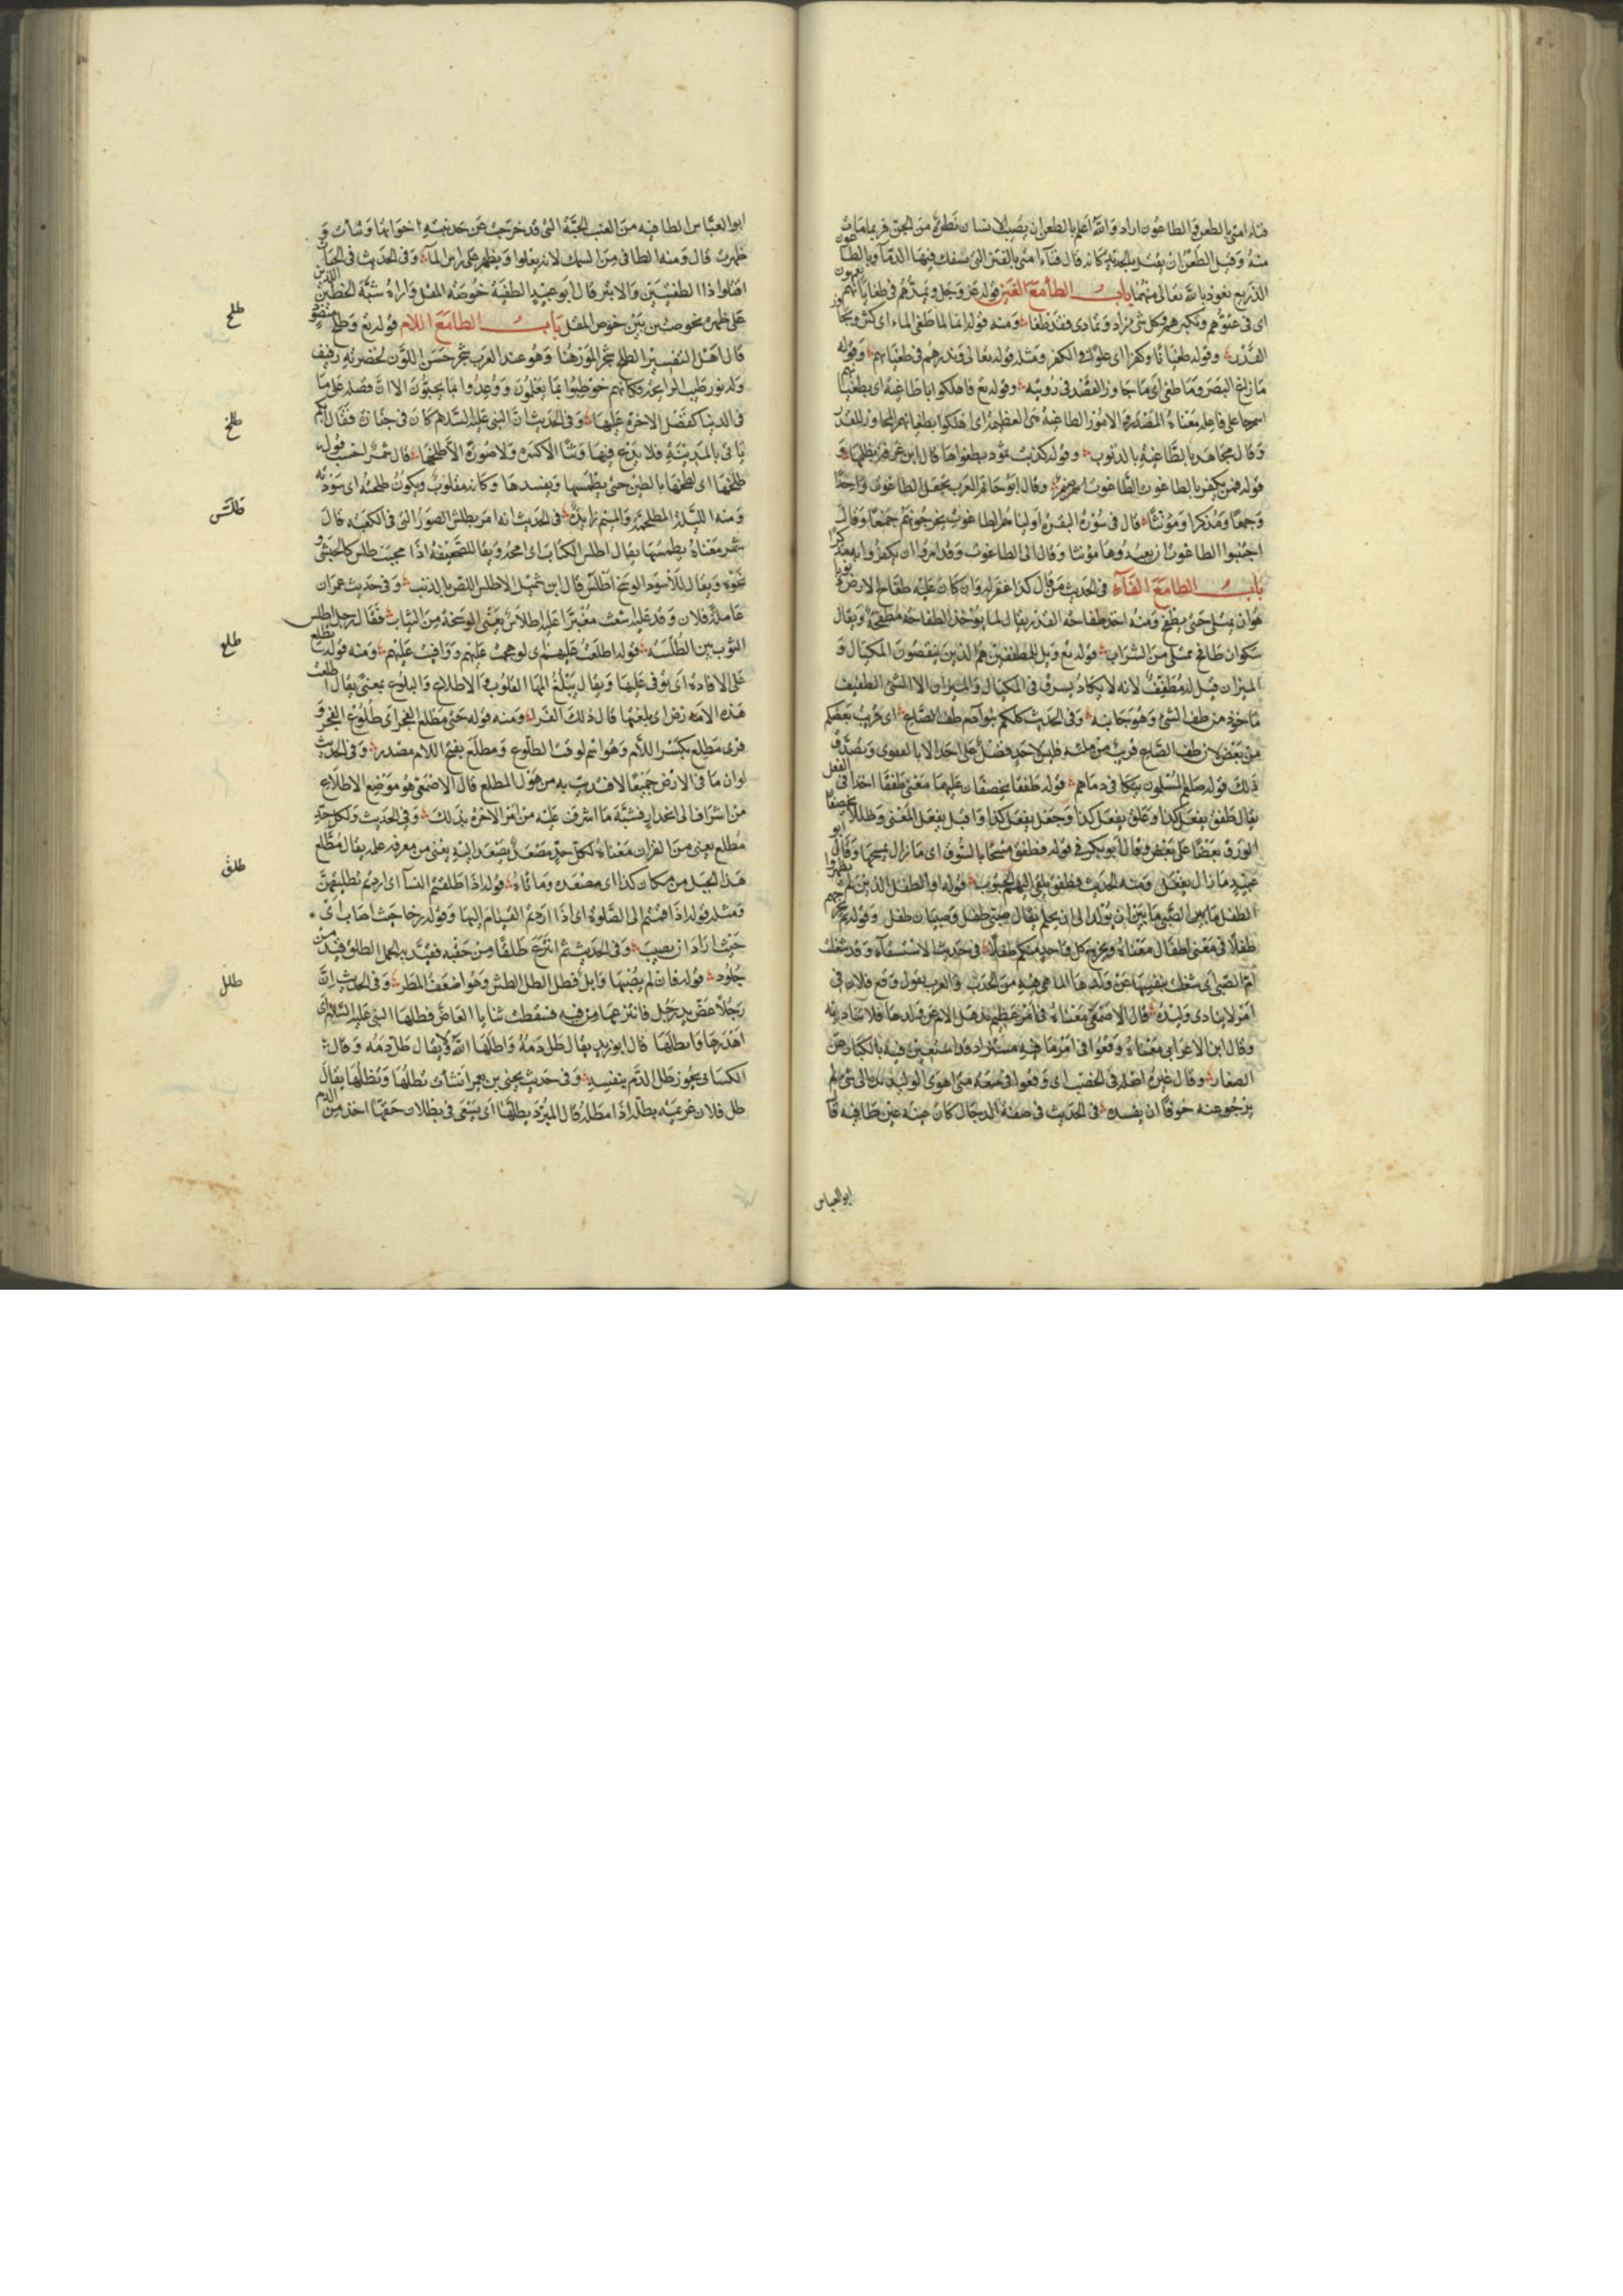 فناء امتى بالطعن والطاعون اراد والله اعلم بالطعن ان يصيب الانسان نظرة من الجن فربما مات
منه وقيل الطعن ان يقتل بالحديد كانه قال فناء امتى بالفتن التى تسفك فيها الدماء وبالطاعون
الذريع نعوذ بالله تعالى منهما باب الطاء مع الغين قوله عز وجل ويمدهم فى طغيانهم يعمهون
اى فى عتوهم وتكبرهم وكل شئ زاد وتمادى فقد طغا ومنه قوله انا لما طغى الماء اى كثر وتجاوز
القدر وقوله طغيانا وكفرا اى علوا فى الكفر ومثله قوله تعالى ونذرهم فى طغيانهم وقوله
ما زاغ البصر وما طغى اى ما جاوز القصد فى رويته وقوله تع فاهلكوا بالطاغية اى بطغيانهم
اسم جا على فاعله معناه المصدر والامور الطاغية هى العظيمة اى اهلكوا بطغيانهم المجاوز للقدر
وقال مجاهد بالطاغية بالذنوب وقوله كذبت ثمود بطغواها قال ابن عرفة بظلمها و
قوله فمن يكفر بالطاغوت الطاغوت اسم صنم وقال ابو حاتم العرب تجعل الطاغوت واحدا
وجمعا ومذكرا ومونثا قال فى سورة البقرة اولياهم الطاغوت يخرجونهم جمعا وقال
اجتنبوا الطاغوت ان يعبدوها مونثا وقال الى الطاغوت وقد امروا ان يكفروا به مذكرا
باب الطاء مع الفاء فى الحديث من قال كذا غفر له وان كان عليه طفاح الارض ذنوبا
هو ان يمتلى حتى يطفح ومنه اخذ طفاحة القدر يقال لما يوخذ الطفاحة مطفحة ويقال
سكران طافح ممتلى من الشراب قوله تع ويل للمطففين هم الذين ينقصون المكيال و
الميزان قيل له مطفف لانه لا يكاد يسرق فى المكيال والميزان الا الشئ الطفيف
ماخوذ من طف الشئ وهو جانبه وفى الحديث كلكم بنو آدم طف الصاع اى قريب بعضكم
من بعض لان طف الصاع قريب من ملئه فليس لاحد فضل على احد الا بالتقوى ويصدق
ذلك قوله صلعم المسلمون تتكافى دماهم قوله طفقا يخصفان عليهما معنى طفقا اخذا فى الفعل
يقال طفق يفعل كذا وعلق يفعل كذا وجعل يفعل كذا واقبل يفعل المعنى وظللا يخصفان
الورق بعضا على بعض وقال ابو بكر فى قوله فطفق مسحا بالسوق اى ما زال يمسحها وقال ابو
عبيد ما زال يفعل ومنه الحديث فطفق يلقى اليهم الجبوب قوله او الطفل الذين لم يظهروا
الطفل هاهنا الصبى ما بين ان يولد الى ان يحلم يقال صبى طفل وصبيان طفل وقوله يخرجكم
طفلا فى معنى اطفال معناه ويخرج كل واحد منكم طفلا فى حديث الاستسقاء وقد شغلت
ام الصبى اى شغلت بنفسها عن ولدها لما هى فيه من الجدب والعرب تقول وقع فلان فى
امر لا ينادى وليده قال الاصمعى معناه فى امر عظيم تذهل الام عن ولدها فلا تناديه
وقال ابن الاعرابى معناه وقعوا فى امر ما فيه مستزاد قد استغنى فيه بالكبار عن
الصغار وقال غيره اصله فى الخصب اى وقعوا فى سعة متى اهوى الوليد يده الى شئ لم
يزجر عنه خوفا ان يفسده فى الحديث فى صفة الدجال كان عينه عنبة طافية قا
ابو العباس
ابو العباس الطافيه من العنب الحبة التى قد خرجت عن حد نبتة اخواتها ونتأت و
ظهرت قال ومنه الطافى من السمك لانه يعلوا ويظهر على راس الماء وفى الحديث فى الحيات
اقتلوا ذا الطفيتين والابتر قال ابو عبيد الطفية خوصة المقل واراه شبه الخطين اللذين
على ظهره بخوصتين من خوص المقل باب الطاء مع اللام قوله تع وطلح منضود
قال اهل التفسير الطلح شجر الموز هنا وهو عند العرب شجر حسن اللون لخضرته رفيف
وله نور طيب الرايحة فكانهم خوطبوا بما يعلمون ووعدوا بما يحبون الا ان فضله على ما
فى الدنيا كفضل الاخرة عليها وفى الحديث ان النبى عليه السلام كان فى جنازة فقال ايكم
ياتى بالمدينة فلا يدع فيها وثنا الا كسره ولا صورة الا طلخها قال شمر احسب قوله
طلخها اى لطخها بالطين حتى يطمسها ويفسدها وكانه مقلوب ويكون طلخته اى سودته
ومنه الليلة المطلخمة والميم زايدة فى الحديث انه امر بطلس الصور التى فى الكعبة قال
شمر معناه بطمسها يقال اطلس الكتاب اى امحه ويقال للصحيفة اذا محيت طلس كالحبشى و
نحوه ويقال للاسود الوسخ اطلس قال ابن شميل الاطلس اللص بالذئب وفى حديث عمر ان
عاملا له فلان وفد عليه اشعث مغبرا عليه اطلاس يعنى الوسخة من الثياب فقال رجل اطلس
الثوب بين الطلسه قوله اطلعت عليهم اى لو هجمت عليهم ووافيت عليهم ومنه قوله تطلع
على الافئدة اى توفى عليها ويقال يبلغ المها القلوب والاطلاع والبلوغ بمعنى يقال اطلعت
هذه الارض اى بلغتها قال ذلك الفرا ومنه قوله حتى مطلع الفجر اى طلوع الفجر و
قرى مطلع بكسر اللام وهو اسم لوقت الطلوع ومطلع بفتح اللام مصدر وفى الحديث
لو ان ما فى الارض جميعا لافتديت به من هول المطلع قال الاصمعى هو موضع الاطلاع
من اشراف الى انحدار فشبه ما اشرف عليه من امر الاخرة بذلك وفى الحديث ولكل حد
مطلع يعنى من القران معناه لكل حد مصعد يصعد اليه يعنى من معرفة علمه يقال مطلع
هذا الجبل من مكان كذا اى مصعده وماتاه قوله اذا طلقتم النساء اى اردتم تطليقهن
ومثله قوله اذا قمتم الى الصلوة اى اذا اردتم القيام اليها وقوله رخا حيث اصاب اى
حيث اراد ان يصيب وفى الحديث ثم انتزع طلقا من حقبه فقيد به الجمل الطلق قيد من
جلود قوله فان لم يصبها وابل فطل الطل الطش وهو اضعف المطر وفى الحديث ان
رجلا عض يد رجل فانتزعها من فيه فسقطت ثنايا العاض فطلها النبى عليه السلام اى
اهدرها وابطلها قال ابو زيد يقال طل دمه واطلها الله ولا يقال طل دمه وقال
الكسائى يجوز طل الدم بنفسه وفى حديث يحيى بن يعمر انشأت تطلها وتظلها يقال
طل فلان غريمه يطله اذا مطله قال المبرد يطلها اى يسعى فى بطلان حقها اخذ من الدم
طلح
طلخ
طلس
طلع
طلق
طلل